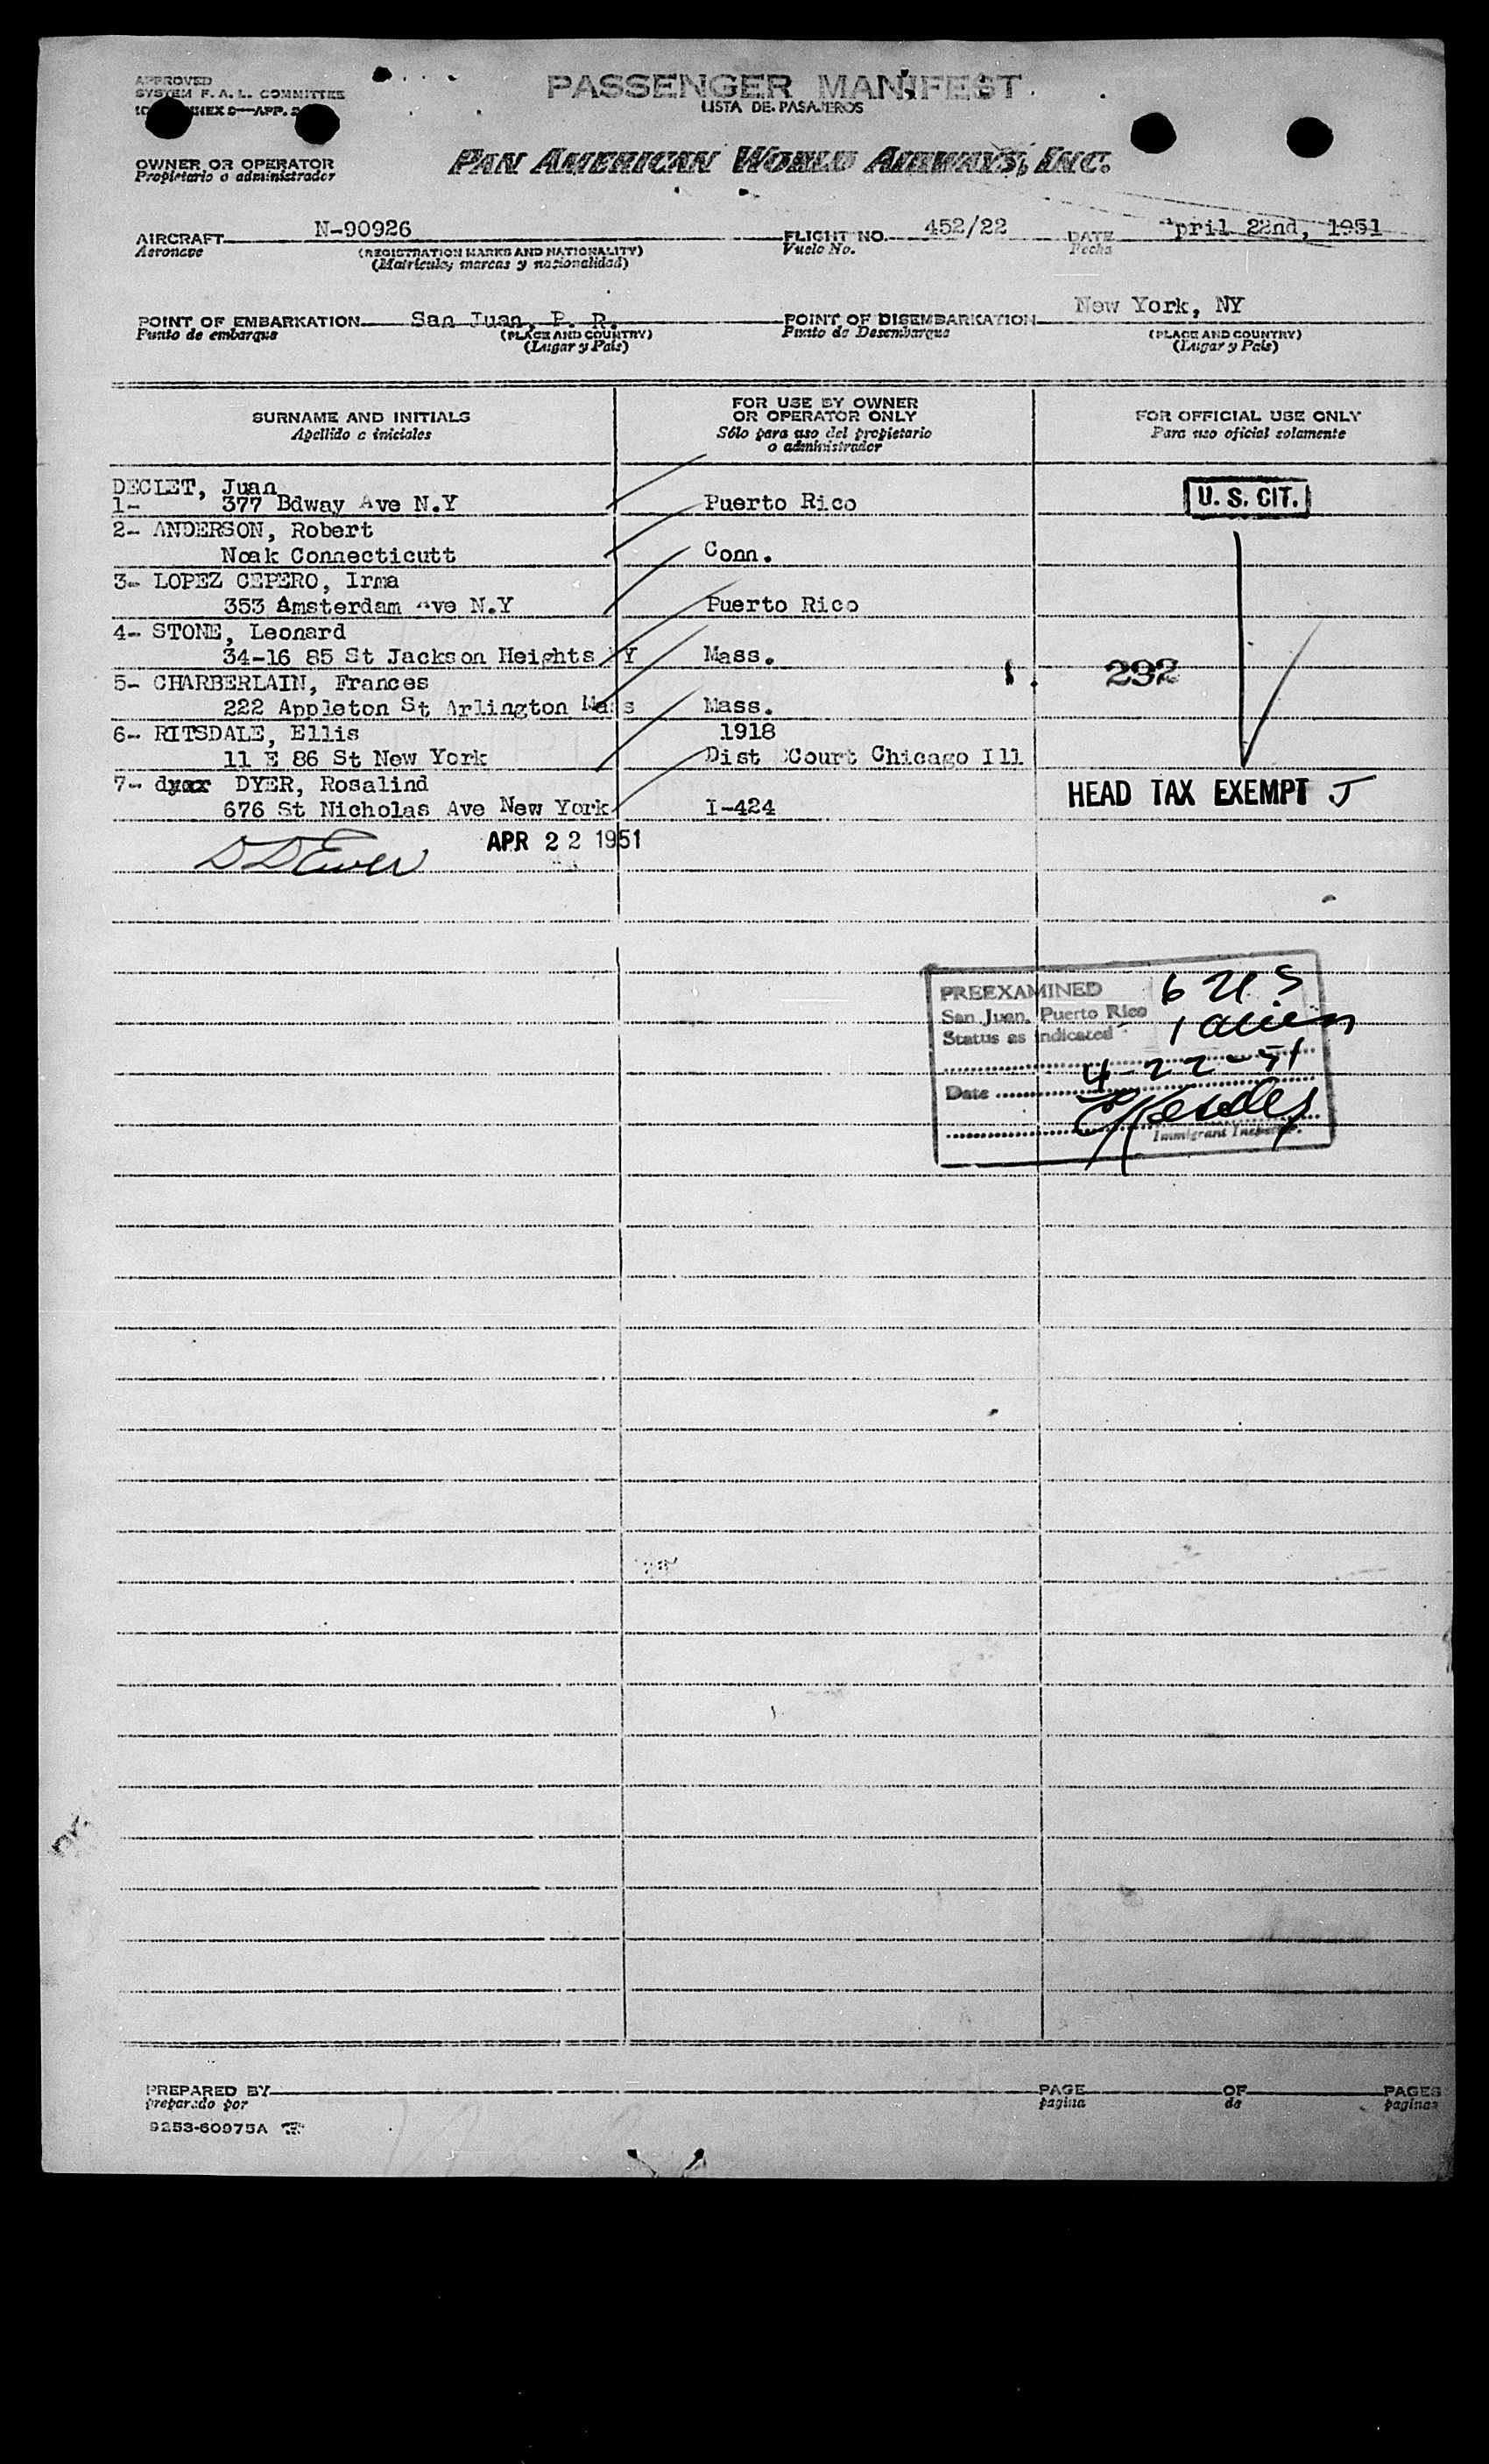 APPROVED
SYSTEM F. A. L. COMMITTEE
PASSENGER MANIFEST
LISTA DE PASAJEROS
OWNER OR OPERATOR
Propietario o administrador
PAN AMERICAN WORLD AIRWAYS, INC.
AIRCRAFT N-90926 FLIGHT NO. 452/22 DATE pril 22nd, 1951
Aeronave (REGISTRATION MARKS AND NATIONALITY) Vuelo No. Fecha
(Matricula, marcas y nacionalidad)
POINT OF EMBARKATION San Juan, P. R. POINT OF DISEMBARKATION New York, NY
Punto de embarque (PLACE AND COUNTRY) Punto de Desembarque (PLACE AND COUNTRY)
(Lugar y País) (Lugar y País)
SURNAME AND INITIALS
Apellido e iniciales
FOR USE BY OWNER
OR OPERATOR ONLY
Sólo para uso del propietario
o administrador
FOR OFFICIAL USE ONLY
Para uso oficial solamente
DECLET, Juan
1- 377 Bdway Ave N.Y Puerto Rico U. S. CIT.
2- ANDERSON, Robert
Noak Connecticutt Conn.
3- LOPEZ CEPERO, Irma
353 Amsterdam ve N.Y Puerto Rico
4- STONE, Leonard
34-16 85 St Jackson Heights NY Mass. 292
5- CHARBERLAIN, Frances
222 Appleton St Arlington Mass Mass.
6- RITSDALE, Ellis 1918
11 E 86 St New York Dist Court Chicago Ill
7- dyxr DYER, Rosalind HEAD TAX EXEMPT J
676 St Nicholas Ave New York I-424
APR 22 1951
PREEXAMINED 6 US
San Juan, Puerto Rico
Status as indicated 1 alien
Date 4-22-51
Immigrant Inspector.
PREPARED BY PAGE OF PAGES
preparado por pagina de paginas
9253-60975A